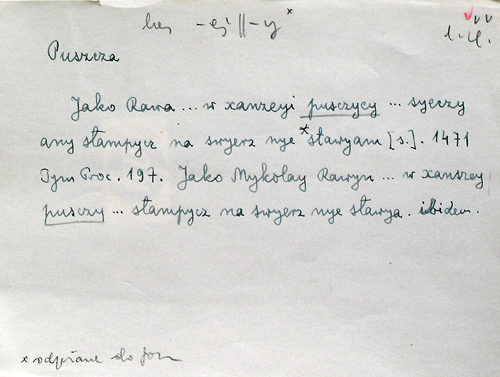 -ej || -y x
l. 4.
Puszcza
Jako Rawa ... w xanzeyi pusczycy ... syeczy
any stampycz na swyerz nye x stawyam [s.]. 1471
Tym Proc. 197. Jako Mykolay Rawyn ... w xanszey
pusczy ... stampycz na swyerz nye stawya. ibidem.
x odpisane do